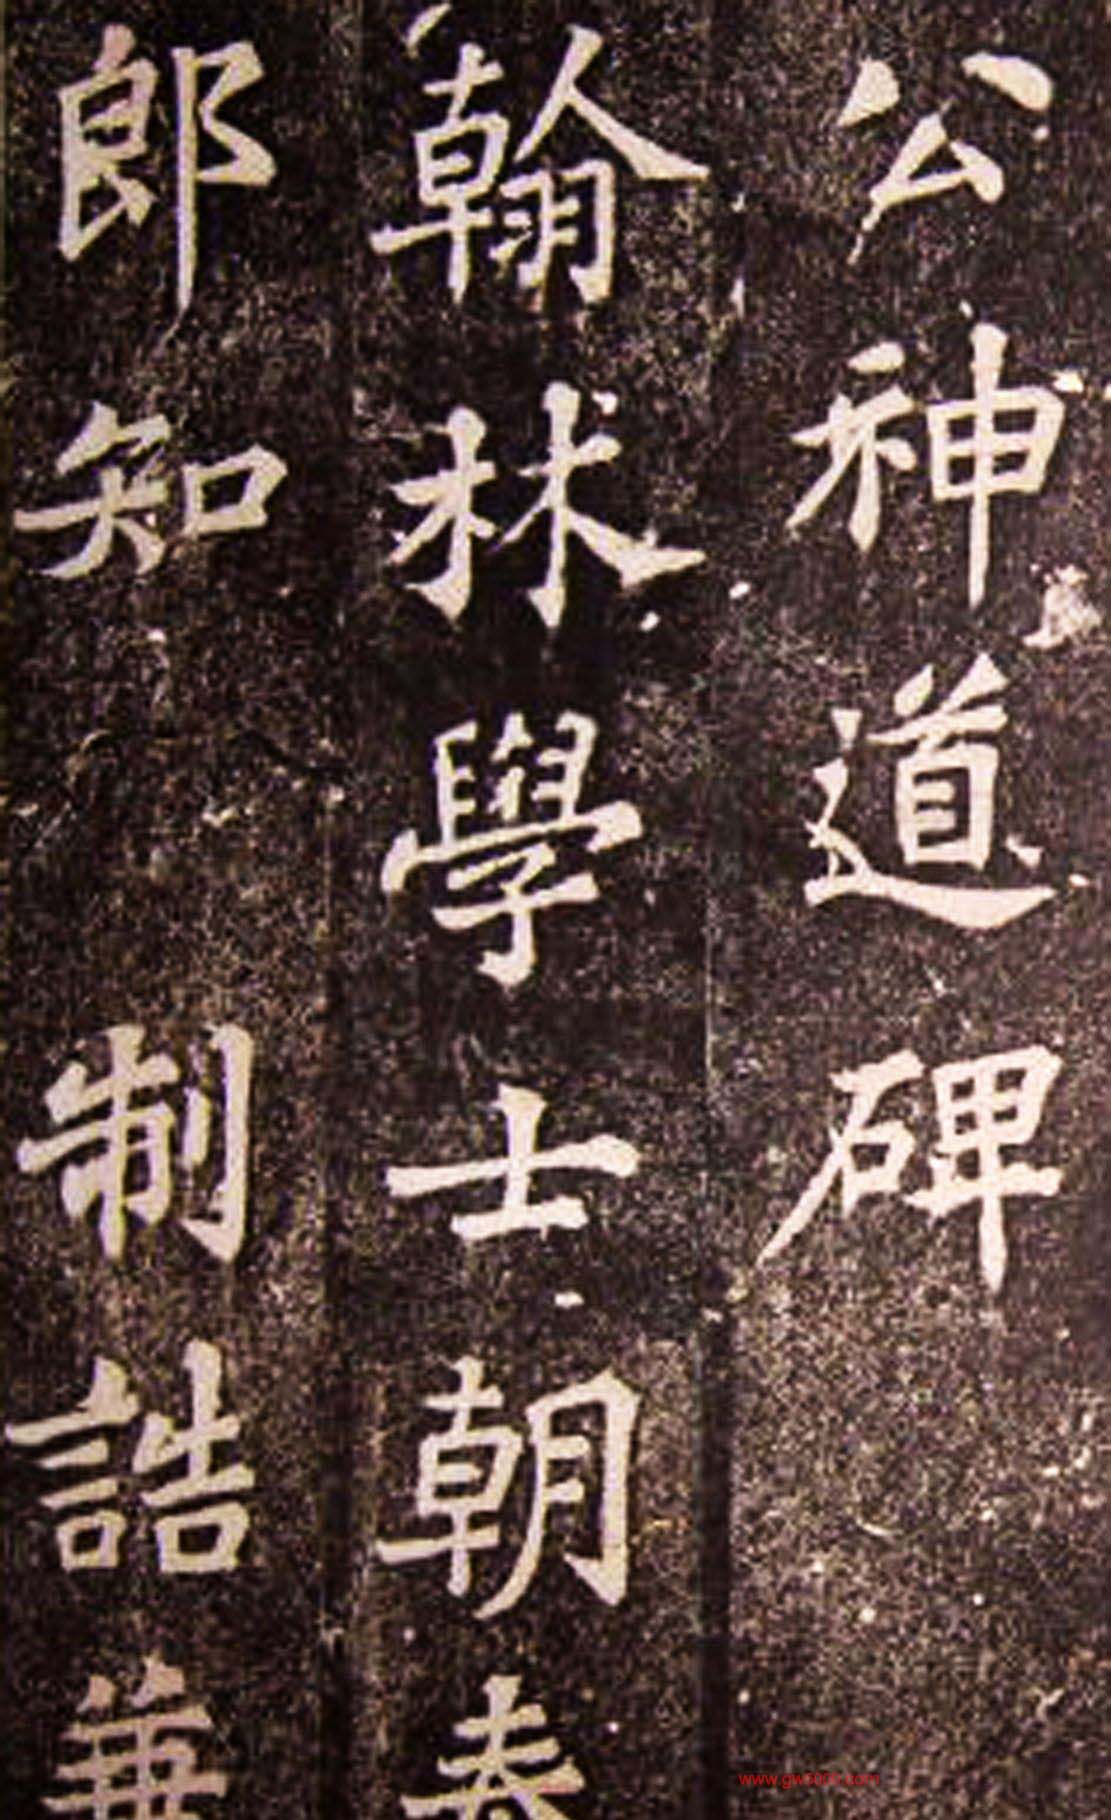 公神道碑
翰林學士朝奉
郎知制誥兼
www.gw5000.com